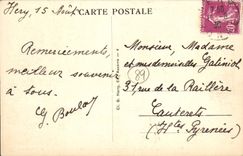 Hery, 15 Août
CARTE POSTALE
Remerciements,
meilleur souvenir
à tous.
G. Boulot
Monsieur, Madame
et mesdemoiselles Galiniol
(89)
31 rue de la Raillère
Cauterets
(Htes Pyrenées)